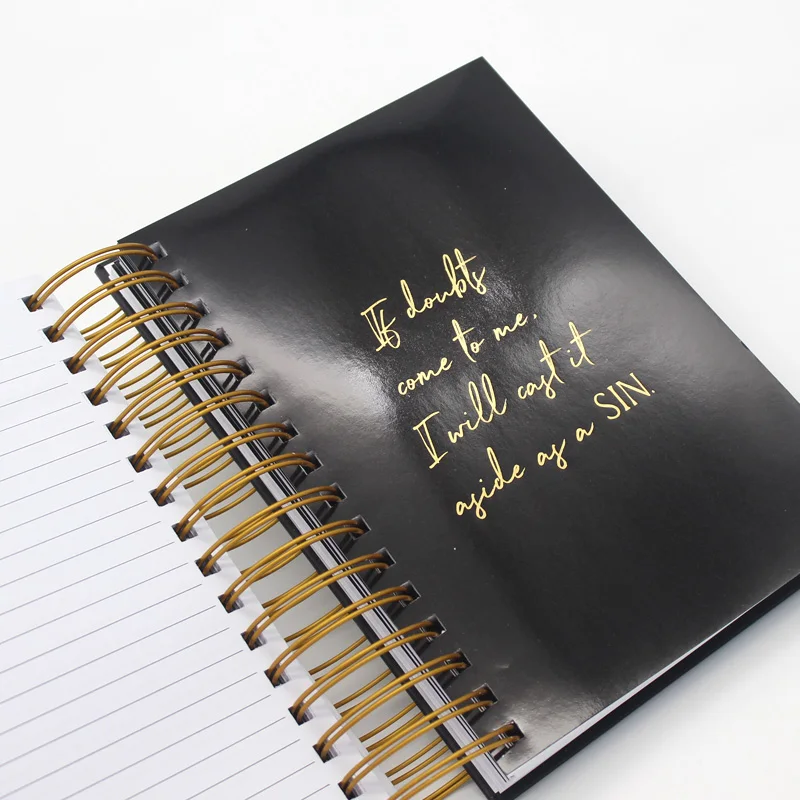 If doubts
come to me,
I will cast it
aside as a SIN.